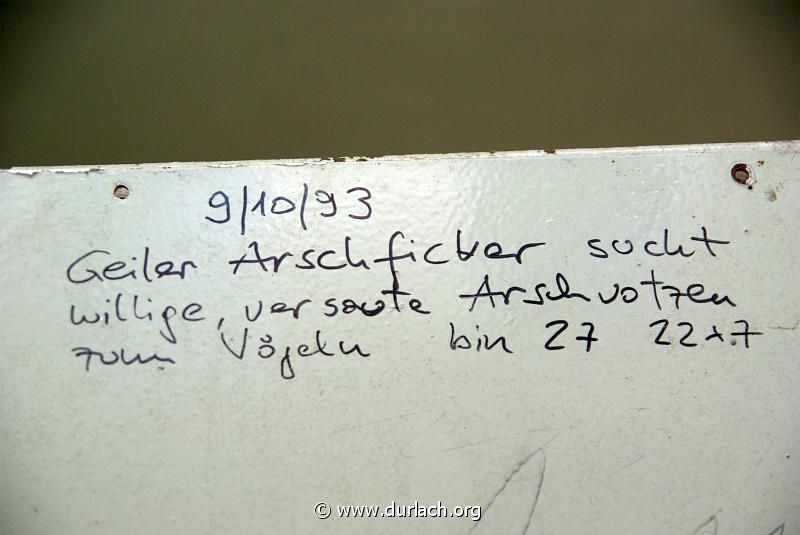 9/10/93
Geiler Arschficker sucht
willige, versaute Arschvotzen
zum Vögeln bin 27 22x7
© www.durlach.org